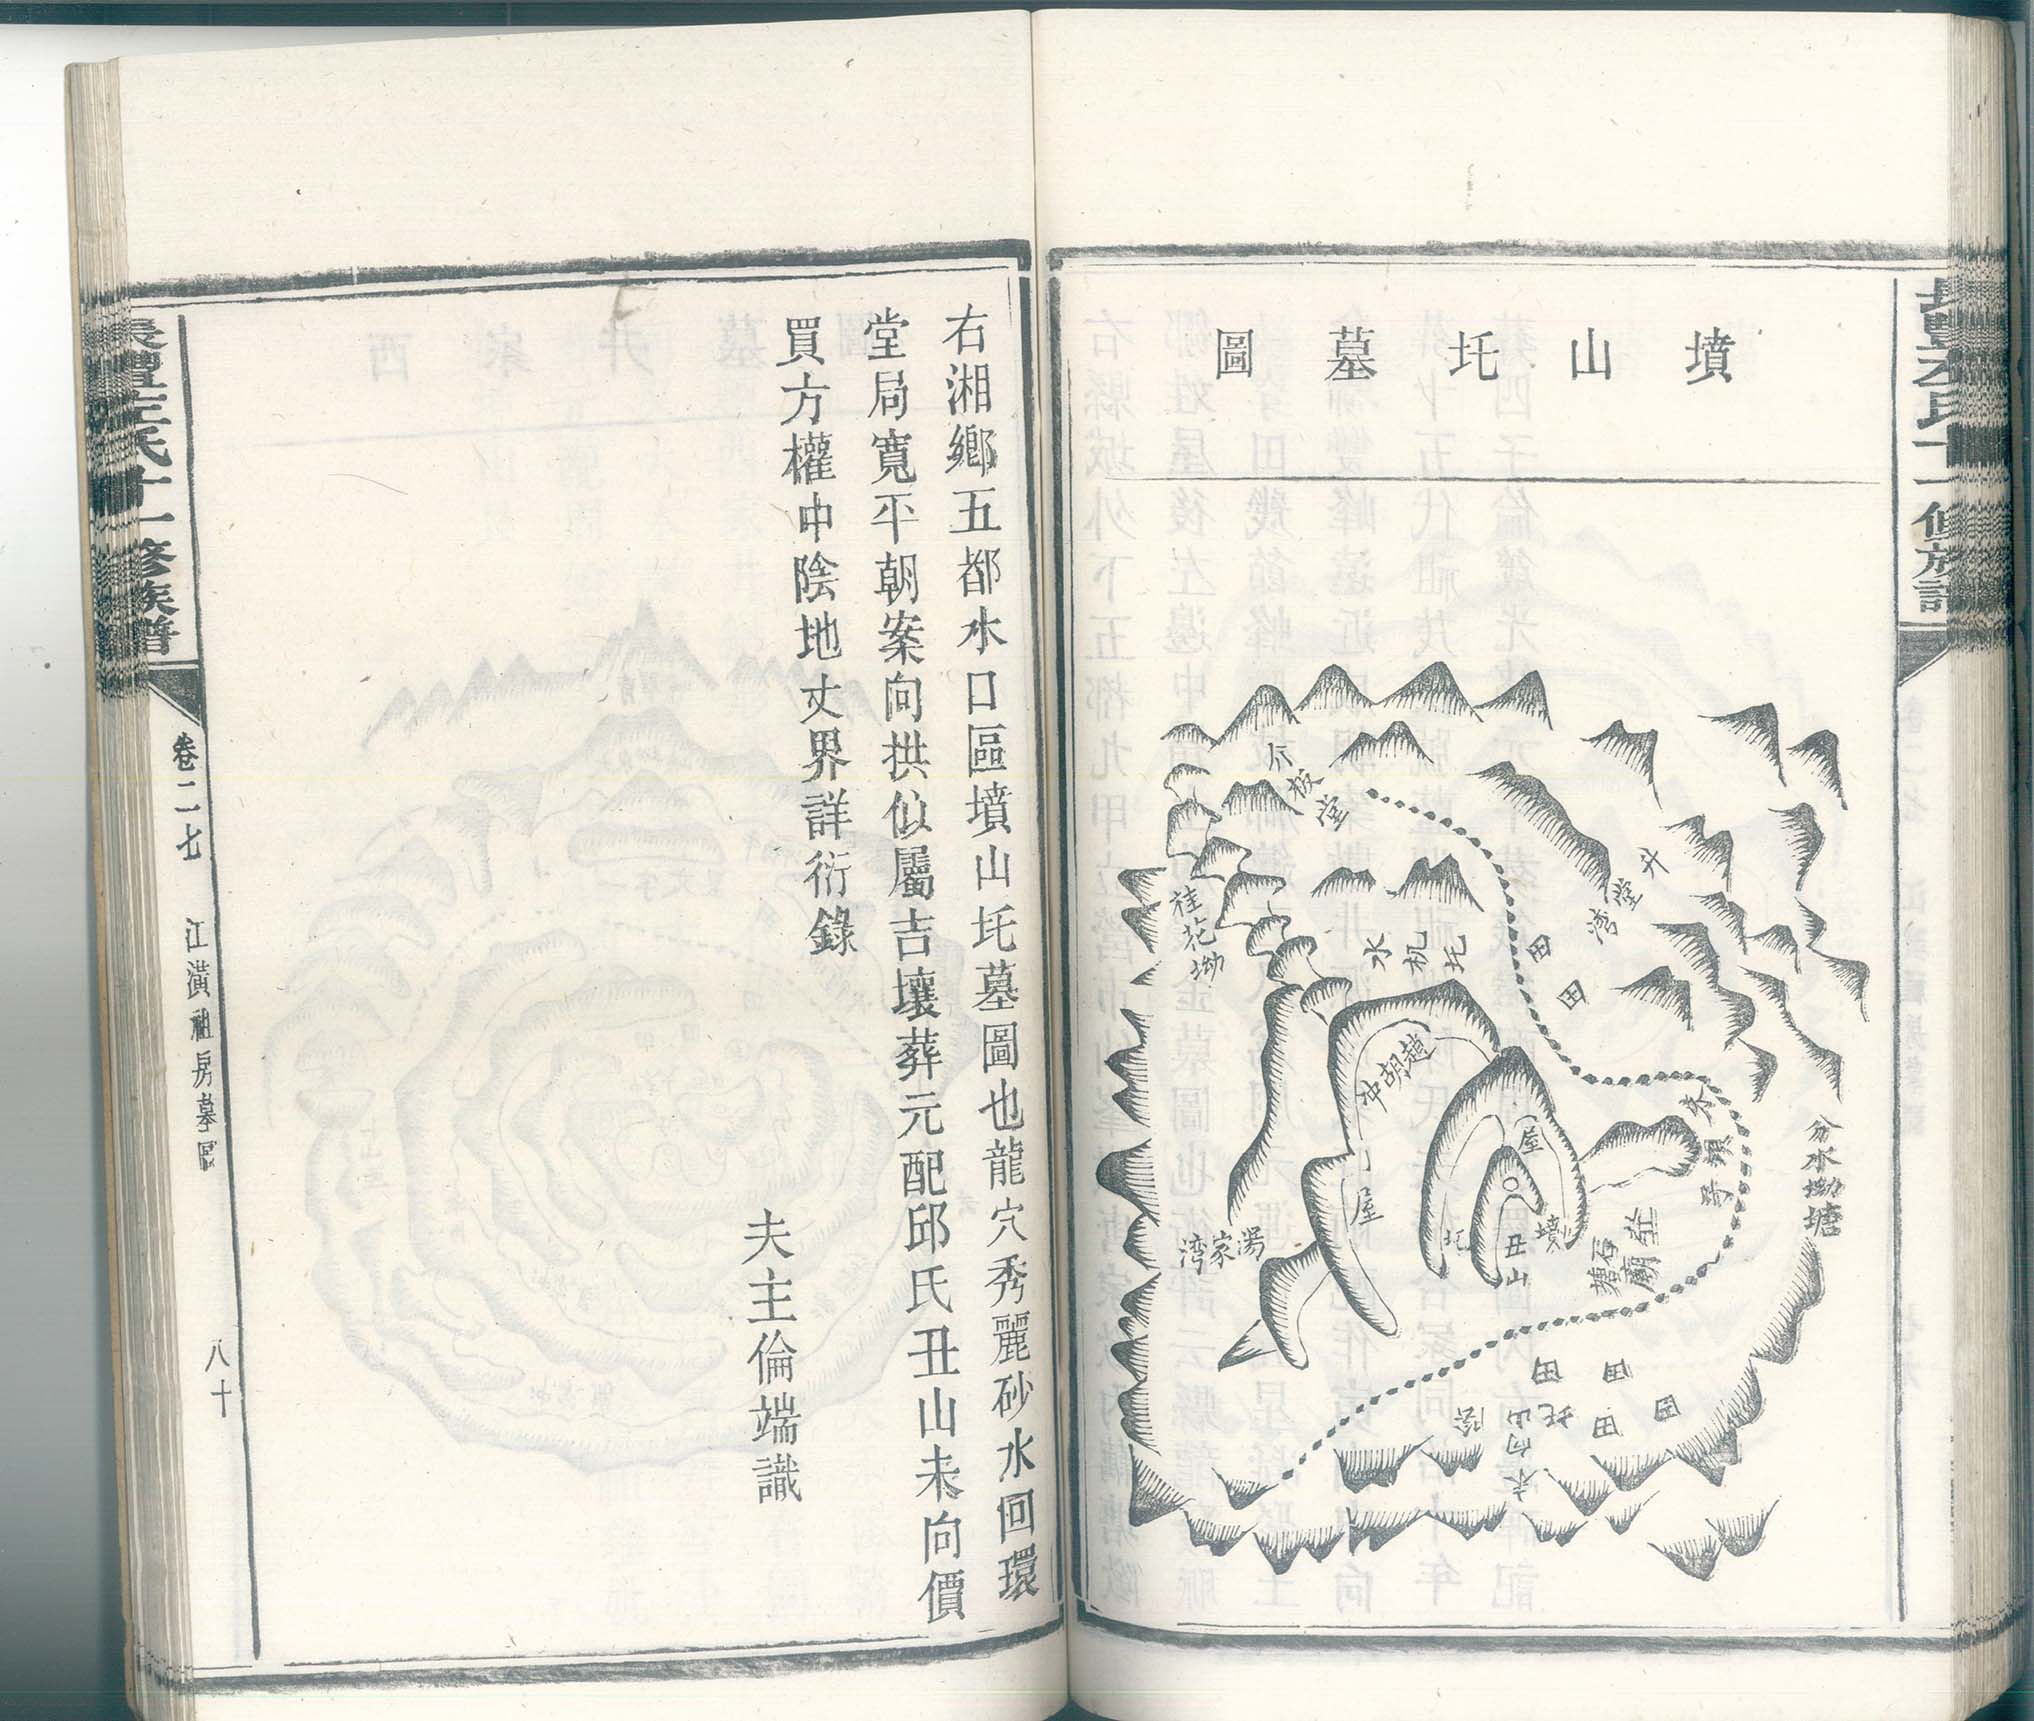 墳山圫墓圖
竹板堂
桂花坳
水机圫
升堂湾
田
田
趙胡冲
屋
屋
墳
丑山
分水坳塘
石塘
庙
湯家湾
田
田
田
田
未向山
右湘鄉五都水口區墳山圫墓圖也龍穴秀麗砂水回環
堂局寬平朝案向拱似屬吉壤葬元配邱氏丑山未向價
買方權中陰地丈界詳衍錄
夫主倫端識
長豐左氏十一修族譜
卷二七
江潢祖房墓圖
八十